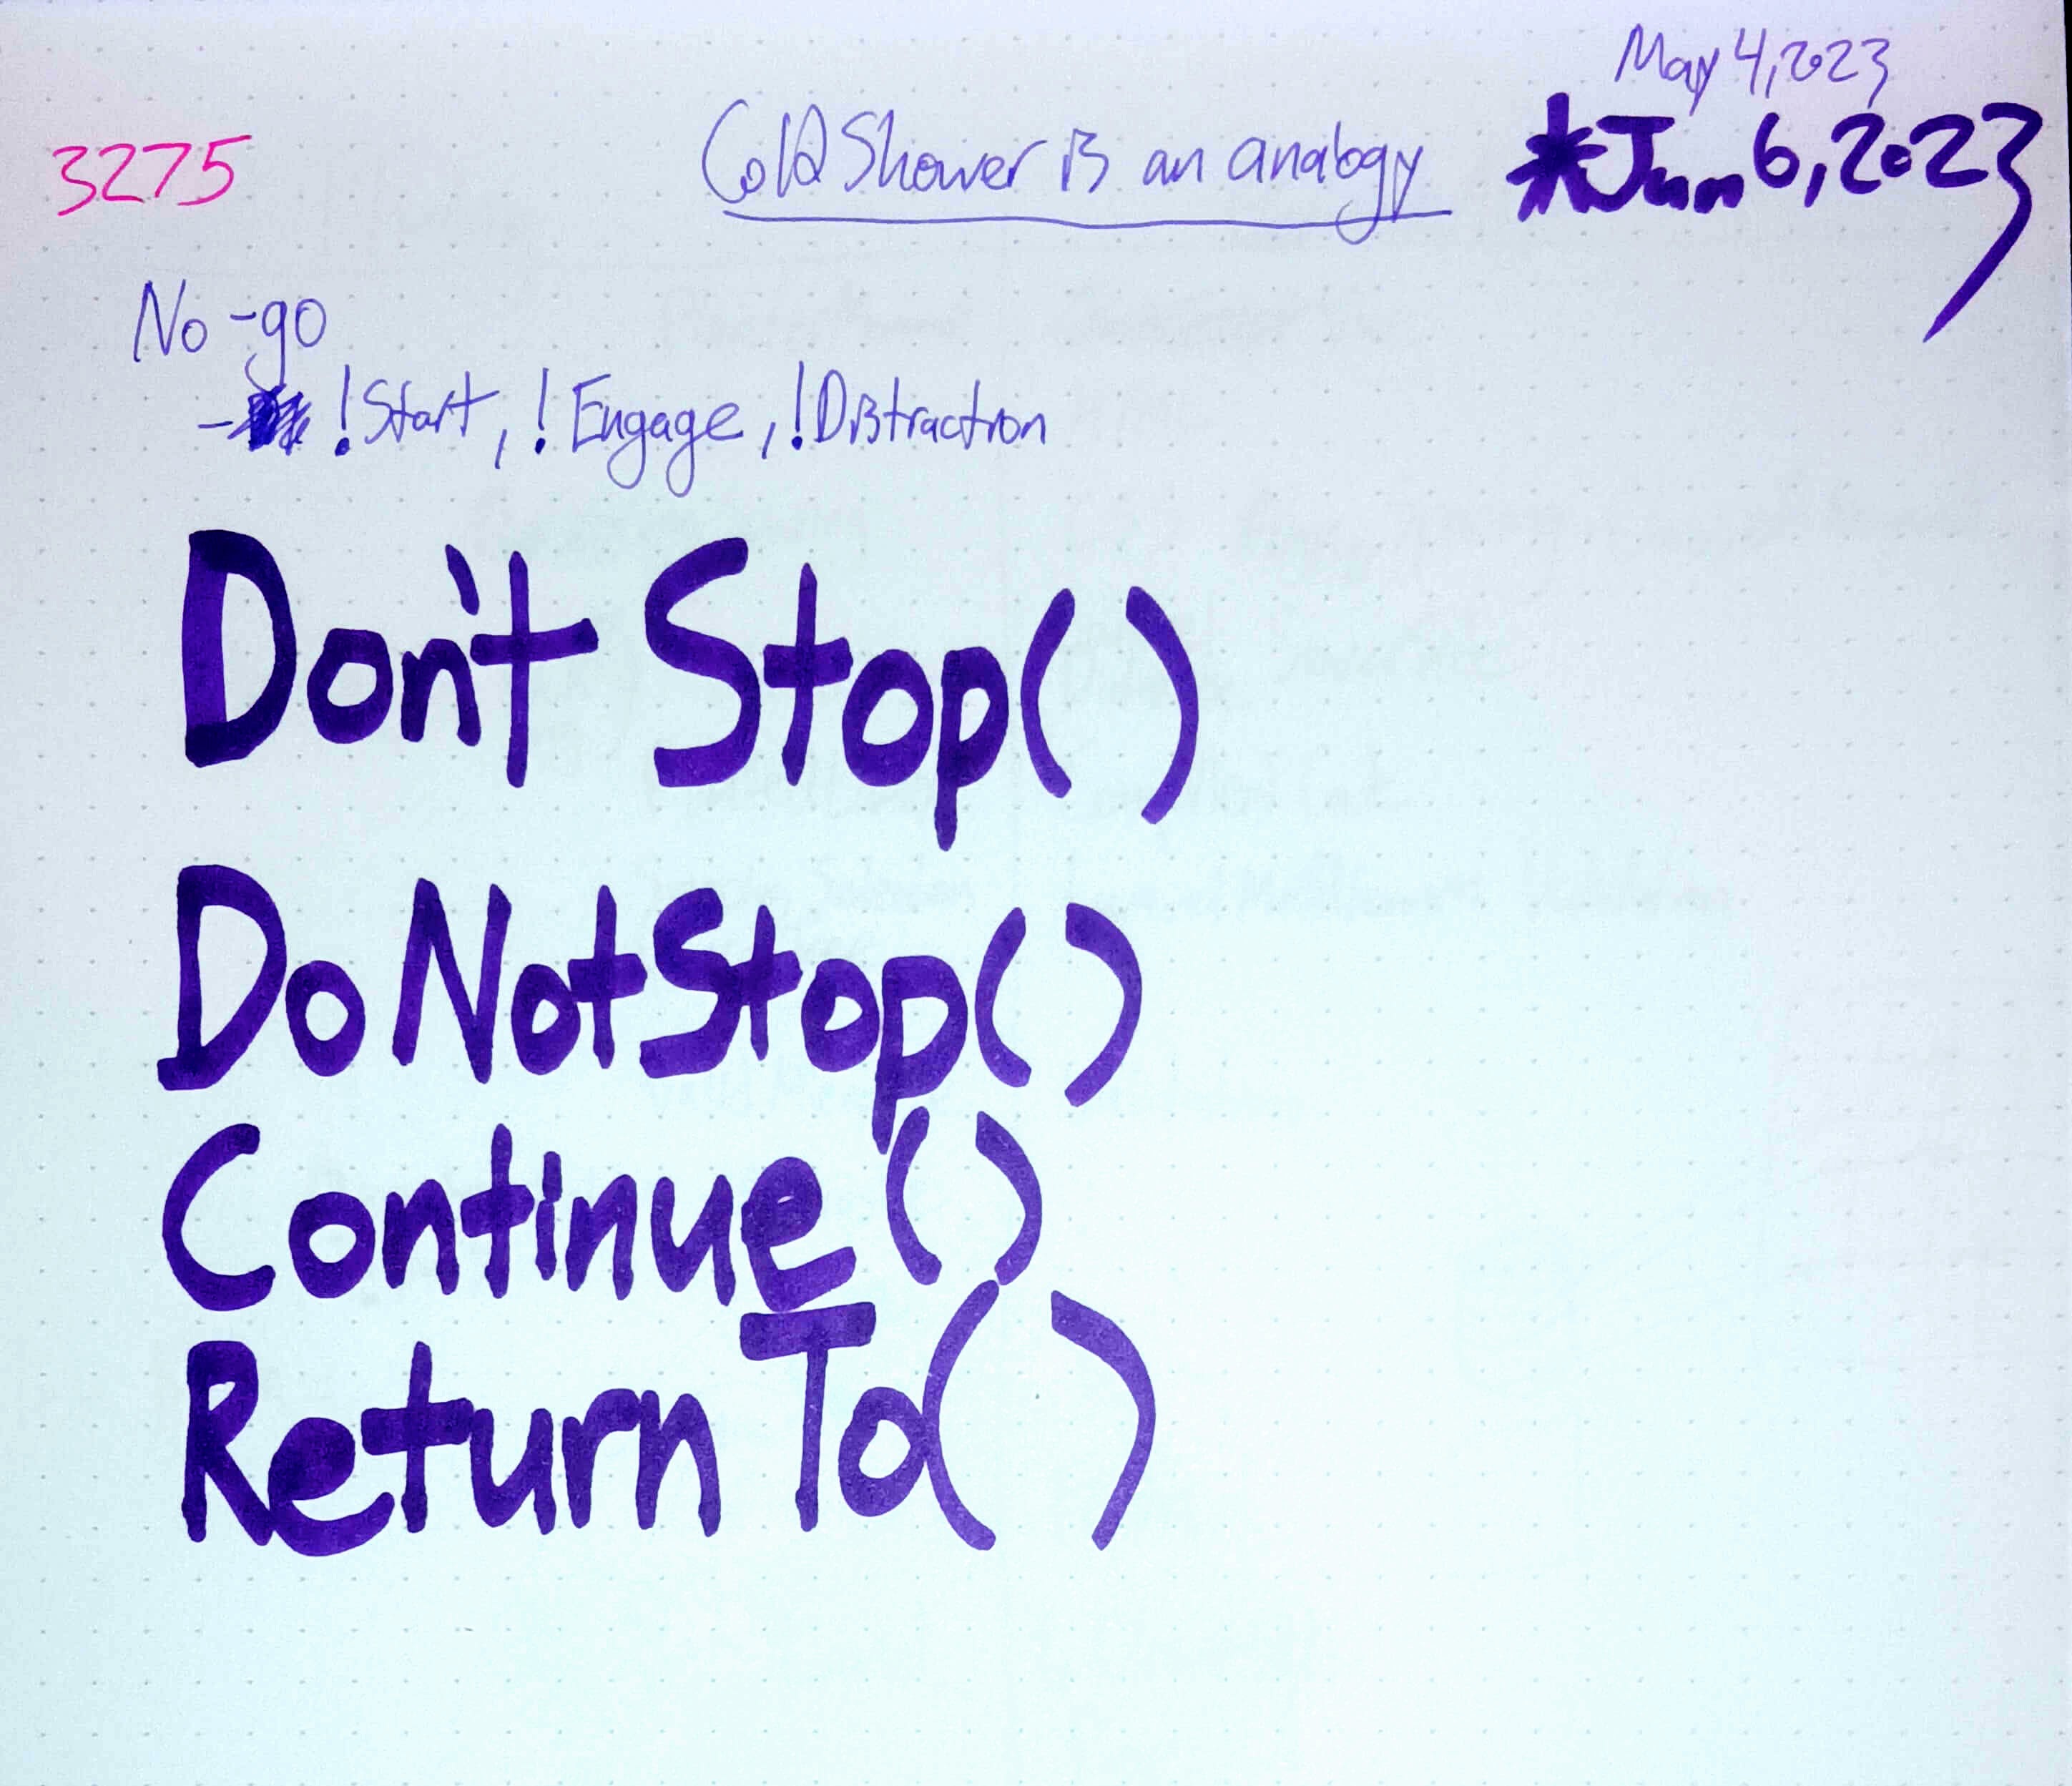 May 4, 2023
3275
Cold Shower is an analogy
*Jun 6, 2023
No-go
- !Start, !Engage, !Distraction
Don't Stop()
Do Not Stop()
Continue()
Return To()